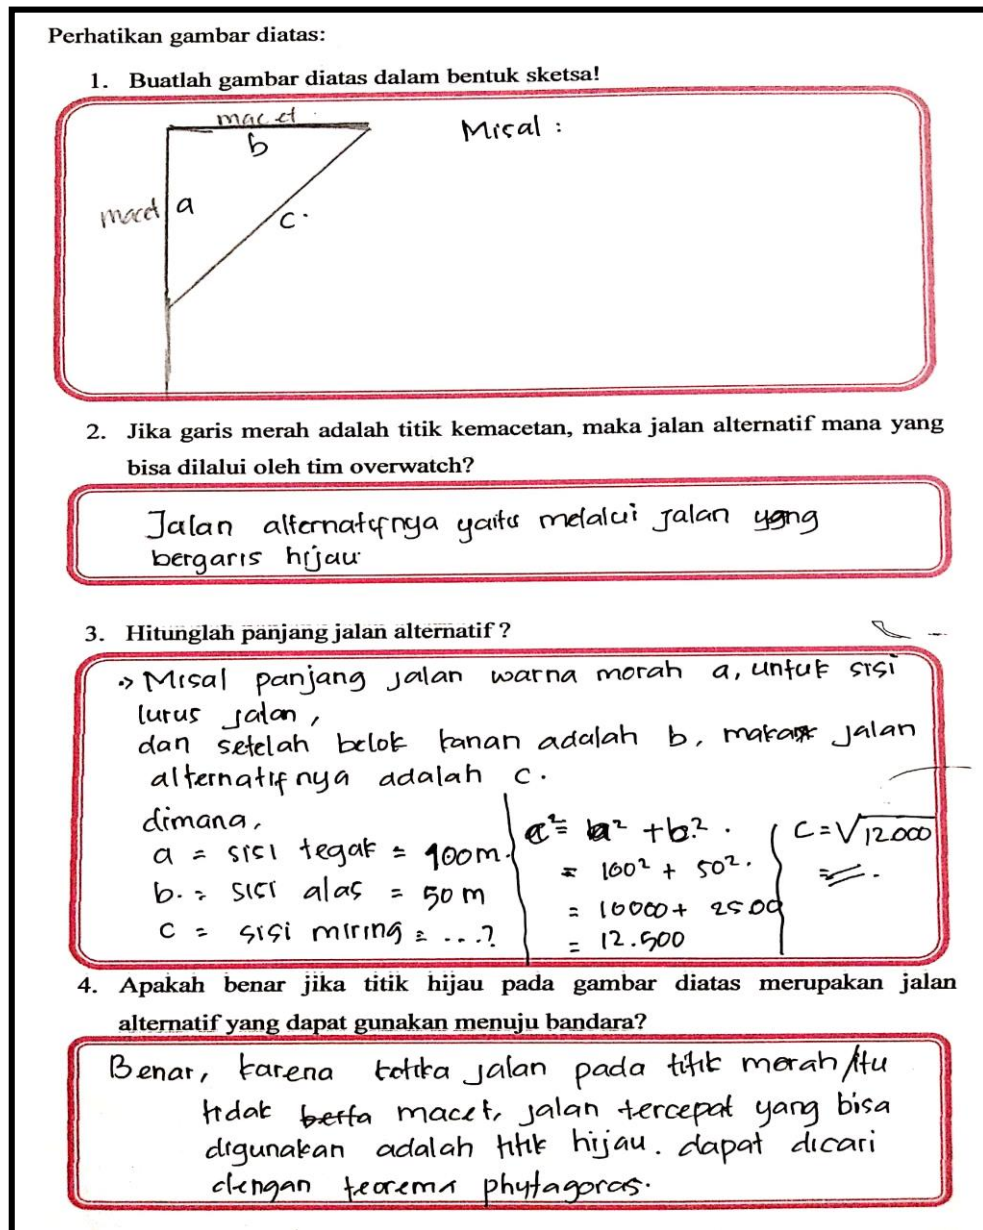 Perhatikan gambar diatas:
1. Buatlah gambar diatas dalam bentuk sketsa!
macet
b
Misal :
macet a
c.
2. Jika garis merah adalah titik kemacetan, maka jalan alternatif mana yang
bisa dilalui oleh tim overwatch?
Jalan alternatifnya yaitu melalui jalan yang
bergaris hijau
3. Hitunglah panjang jalan alternatif ?
Misal panjang jalan warna merah a, untuk sisi
lurus jalan,
dan setelah belok kanan adalah b, maka jalan
alternatifnya adalah c.
dimana,
a = sisi tegak = 100m.
b. = sisi alas = 50 m
c = sisi miring = ...?
c² = a² + b².
= 100² + 50².
= 10000 + 2500
= 12.500
C = √12000
4. Apakah benar jika titik hijau pada gambar diatas merupakan jalan
alternatif yang dapat gunakan menuju bandara?
Benar, karena ketika jalan pada titik merah itu
tidak macet, jalan tercepat yang bisa
digunakan adalah titik hijau. dapat dicari
dengan teorema phytagoras.